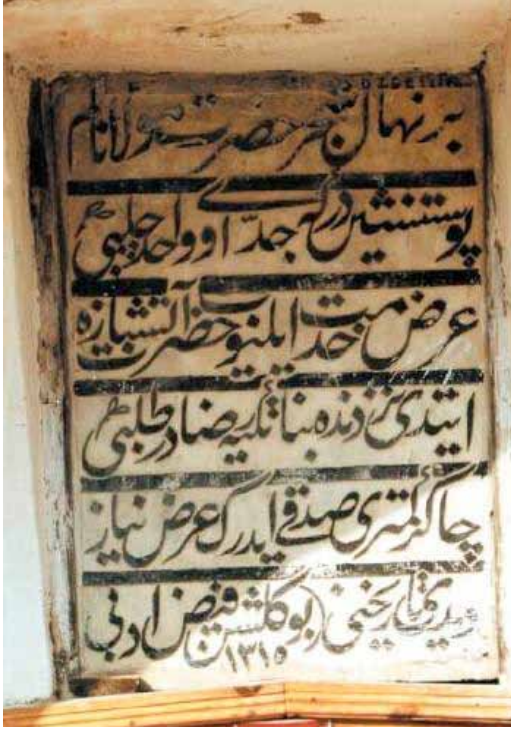 بر نهال ثمر حضرت مولانا نام
پوستنشین درکه جدی او واحد چلبی
عرض خدمت ایلیوب حضرت آتشبازه
ایتدی نزدنده بنا تکیه رضا در طلبی
چاکر کمتری صدقی ایدرک عرض نیاز
دیدی تاریخنی بو گلشن فیض ادبی
۱۳۱۵